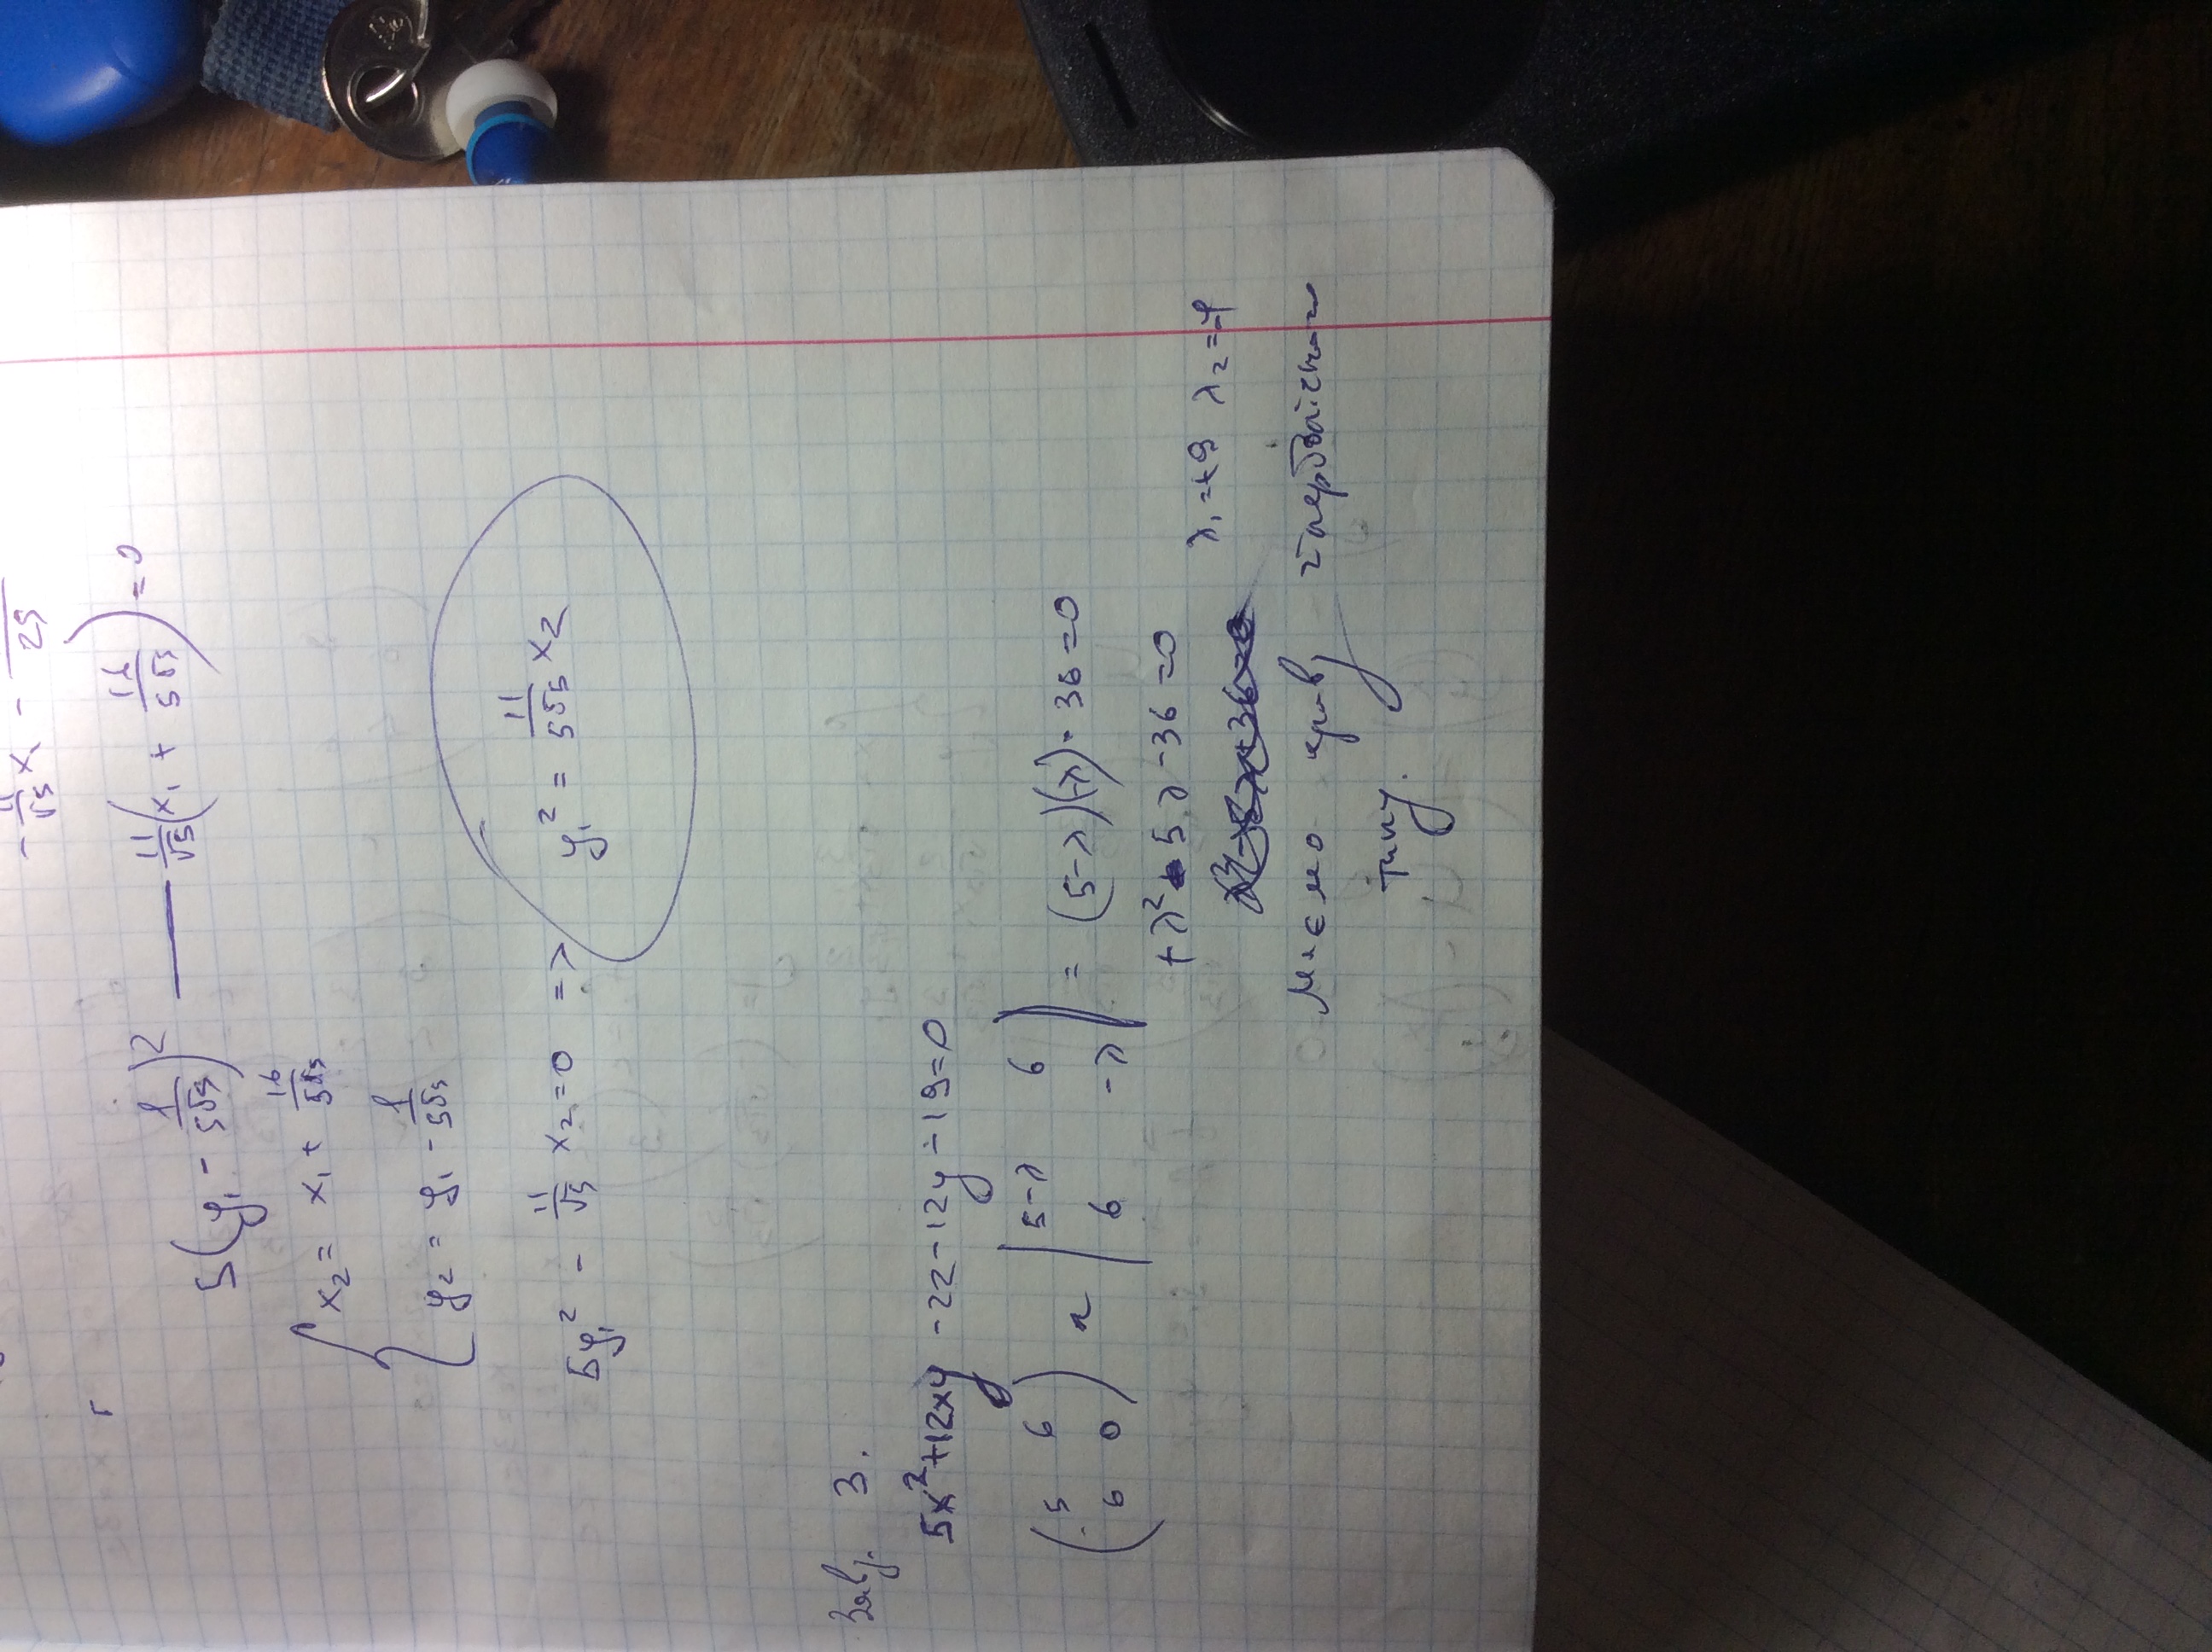 5(y₁ - 1/(5√5))² — 11/√5(x₁ + 11/(5√5)) = 0
{ x₂ = x₁ + 16/(5√5)
y₂ = y₁ - 1/(5√5)
5y₁² - 11/√5 x₂ = 0 => y₁² = 11/(5√5) x₂
Завд. 3.
5x²+12xy - 22 - 12y - 19 = 0
(5 6; 6 0) |5-λ 6; 6 -λ| = (5-λ)(-λ) - 36 = 0
+λ² - 5λ - 36 = 0 λ₁ = +9 λ₂ = -4
Маємо криву гіперболічного
типу.